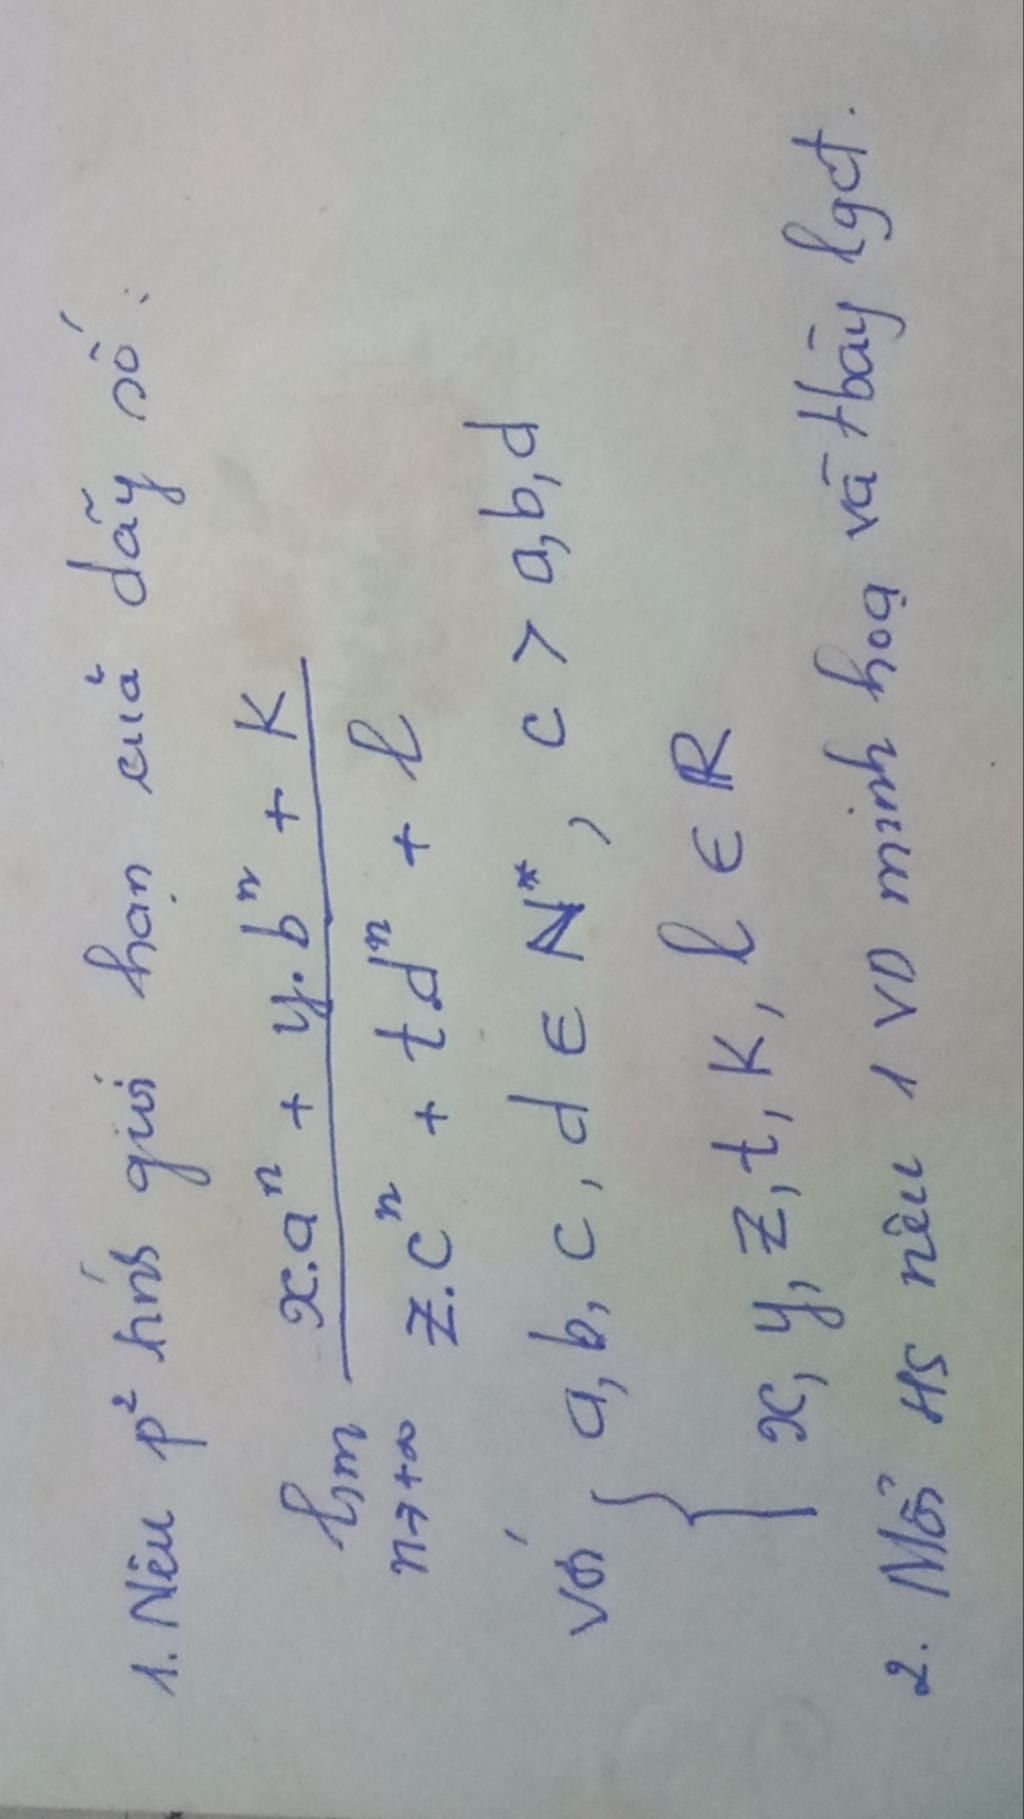 1. Nêu p² tính giới hạn của dãy số:
lim x.aⁿ + y.bⁿ + K
n→+∞ z.cⁿ + t.dⁿ + l
với { a, b, c, d ∈ N*, c > a, b, d
x, y, z, t, K, l ∈ R
2. Mỗi HS nêu 1 VD minh hoạ và tbày lgct.